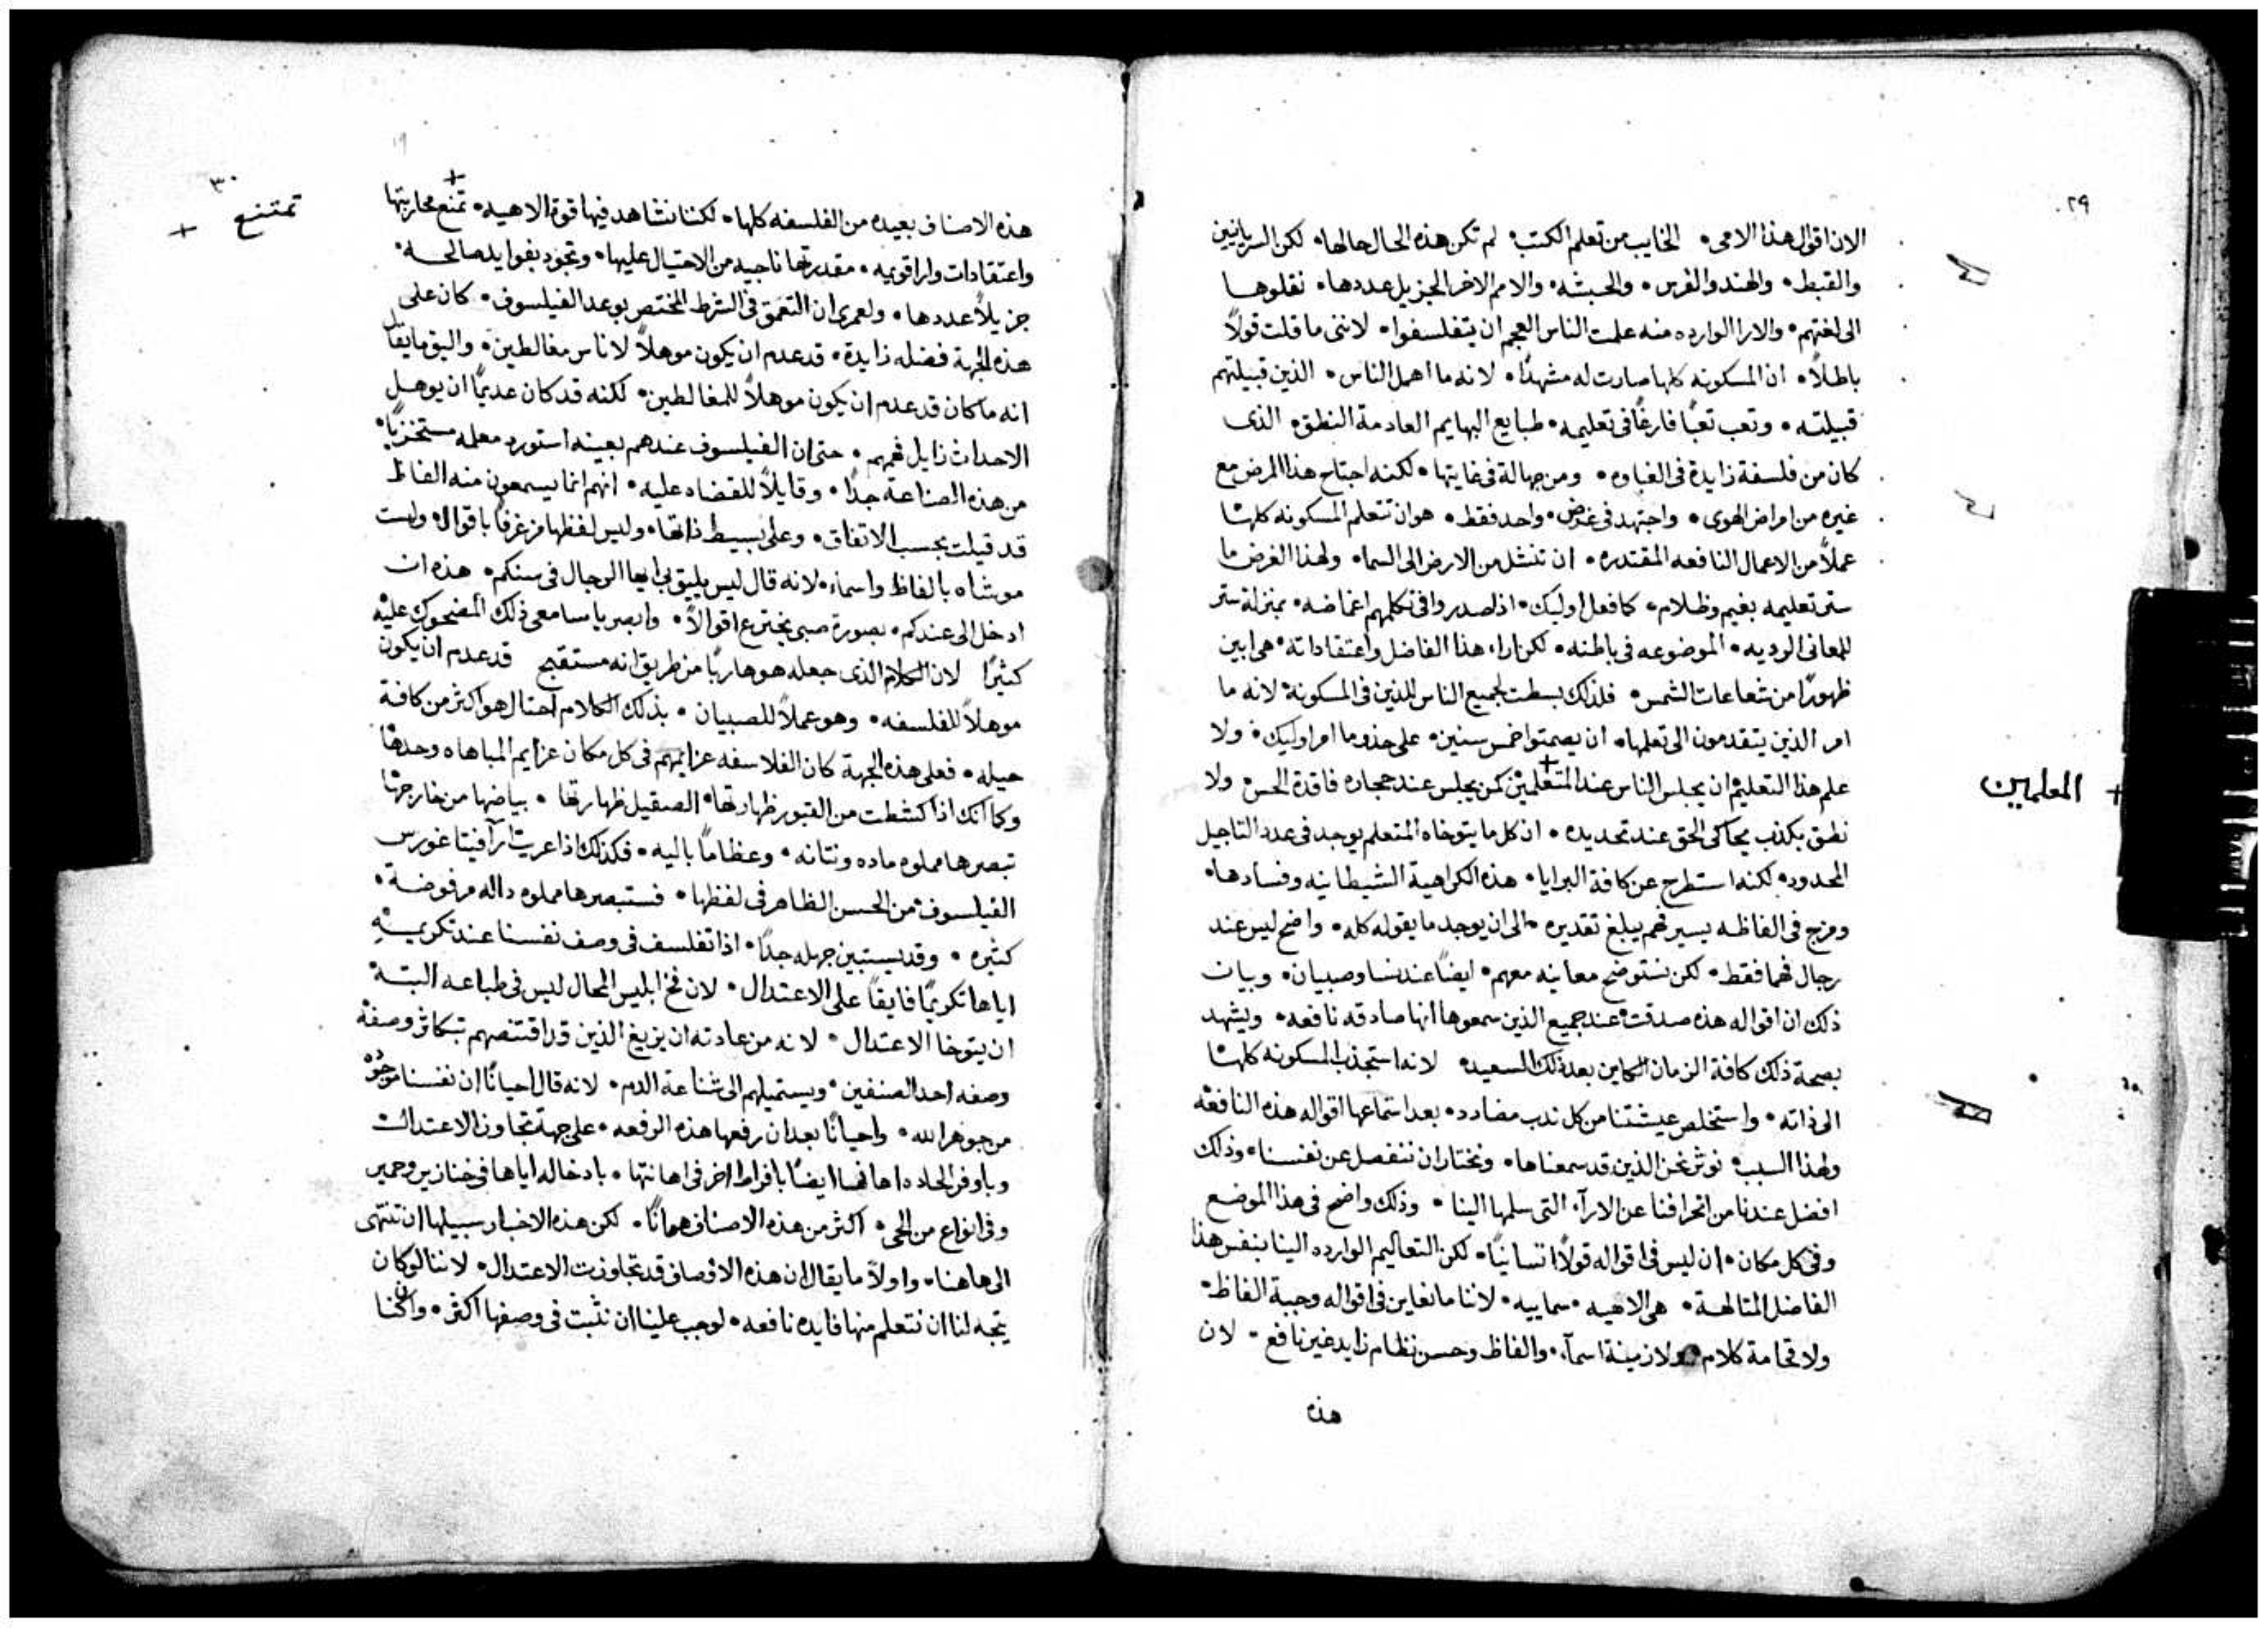 ٢٩
الان اقوال هذا الامى • الخايب من تعلم الكتب • لم تكن هذه الحال حالها • لكن السريانيين
والقبط • والهند والفرس • والحبشه • والامم الاخر الجزيل عددها • نقلوها
الى لغتهم • والارا الوارده منه علمت الناس العجم ان يتفلسفوا • لاننى ما قلت قولاً
باطلاً • ان المسكونه كلها صارت له مشهدًا • لانه ما اهمل الناس • الذين قبيلتهم
قبيلته • وتعب تعبًا فارغًا فى تعليمه • طبايع البهايم العادمة النطق • الذى
كان من فلسفة زايدة فى الغباوه • ومن جهالة فى غايتها • لكنه اجتاح هذا المرض مع
غيره من امراض الهوى • واجتهد فى غرض • واحد فقط • هو ان تتعلم المسكونه كلها
عملاً من الاعمال النافعه المقتدره • ان تنشل من الارض الى السما • ولهذا الغرض ما
ستر تعليمه بغيم وظلام • كما فعل اوليك • اذا صدروا فى تكلمهم اغماضه • بمنزلة ستر
للمعانى الرديه • الموضوعه فى باطنه • لكن اراء هذا الفاضل واعتقاداته • هى ابين
ظهورًا من شعاعات الشمس • فلذلك بسطت لجميع الناس للذين فى المسكونة • لانه ما
امر الذين يتقدمون الى تعلمها • ان يصمتوا خمس سنين • على حذو ما امر اوليك • ولا
علم هذا التعليم ان يجلس الناس عند المتعلمين كمن يجلس عند حجاره فاقدة الحس • ولا
+ المعلمين
نطق بكذب يحاكى الحق عند تحديده • ان كل ما يتوخاه المتعلم يوجد فى عدد التاجيل
المحدود • لكنه استطرح عن كافة البرايا • هذه الكراهية الشيطانيه وفسادها •
ومزج فى الفاظه يسير فهم يبلغ تقديره • الى ان يوجد ما يقوله كله • واضح ليس عند
رجال فهما فقط • لكن نستوضح معانيه معهم • ايضًا عند نسا وصبيان • وبيان
ذلك ان اقواله هذه صدقت عند جميع الذين سمعوها انها صادقه نافعه • ويشهد
بصحة ذلك كافة الزمان الكاين بعد ذلك السعيد • لانه استجذب المسكونه كلها
الى ذاته • واستخلص عيشتنا من كل ندب مضادد • بعد استماعها اقواله هذه النافعه
ولهذا السبب • نوثر نحن الذين قد سمعناها • ونختار ان ننفصل عن نفسنا • وذلك
افضل عندنا من انحرافنا عن الارآء التى سلمها الينا • وذلك واضح فى هذا الموضع
وفى كل مكان • ان ليس فى اقواله قولاً انسانيًا • لكن التعاليم الوارده الينا بنفس هذا
الفاضل المتالهة • هى الاهيه • سماييه • لاننا ما نعاين فى اقواله وجبة الفاظ •
ولا فخامة كلام • ولا زينة اسمآء • والفاظ وحسن نظام زايد غير نافع • لان
هذه
٣٠
هذه الاصناف بعيده من الفلسفه كلها • لكننا نشاهد فيها قوة الاهيه • تمنع محاربتها
تمتنع +
واعتقادات وارا قويمه • مقدرتها ناجيه من الاحتيال عليها • وتجود بفوايد صالحه •
جزيلاً عددها • ولعمرى ان التعمق فى الشرط المختص بوعد الفيلسوف • كان على
هذه الجهة فضله زايدة • قد عدم ان يكون موهلاً لاناس مغالطين • واليق ما يقال
انه ما كان قد عدم ان يكون موهلاً للمغالطين • لكنه قد كان عديمًا ان يوهل
الاحداث زايل فهمهم • حتى ان الفيلسوف عندهم بعينه استورد معلمه مستخزيًا •
من هذه الصناعة جدًا • وقايلاً للقضاه عليه • انهم انما يسمعون منه الفاظ
قد قيلت بحسب الاتفاق • وعلى بسيط ذاتها • وليس لفظها مزغرفًا باقوال • وليست
موشاه بالفاظ واسماء • لانه قال ليس يليق بى ايها الرجال فى سنكم • هذه ان
ادخل الى عندكم • بصورة صبى يخترع اقوالاً • وابصر يا سامعى ذلك المضحوك عليه
كثيرًا لان الكلام الذى جعله هو هاربًا من طريق انه مستقبح قد عدم ان يكون
موهلاً للفلسفه • وهو عملاً للصبيان • بذلك الكلام احتال هو اكثر من كافة
حيله • فعلى هذه الجهة كان الفلاسفه عزايمهم فى كل مكان عزايم المباهاه وحدها
وكما انك اذا كشطت من القبور ظهارتها • الصقيل ظهارتها • بياضها من خارجها
تبصرها مملوه ماده ونتانه • وعظامًا باليه • فكذلك اذا عريت ارآ فيثاغورس
الفيلسوف من الحسن الظاهر فى لفظها • فستبصرها مملوه داله مرفوضة •
كثيره • وقد يستبين جهله جدًا • اذا تفلسف فى وصف نفسنا عند تكريمه
اياها تكريمًا فايقًا على الاعتدال • لان فخ ابليس المحال ليس فى طباعه البتة
ان يتوخا الاعتدال • لانه من عادته ان يزيغ الذين قد اقتنصهم بتكاثر وصفه
وصفه احد الصنفين • ويستميلهم الى شناعة الدم • لانه قال احيانًا ان نفسنا موجوده
من جوهر الله • واحيانًا بعد ان رفعها هذه الرفعه • على جهة تجاوز الاعتدال
وباوفر الحاده اهانها ايضًا بافراط اخر فى اهانتها • بادخاله اياها فى خنازير وحمير
وفى انواع من الحى • اكثر من هذه الاصناف هوانًا • لكن هذه الاخبار سبيلها ان تنتهى
الى هاهنا • واولاً ما يقال ان هذه الاوصاف قد تجاوزت الاعتدال • لاننا لو كان
يتجه لنا ان نتعلم منها فايده نافعه • لوجب علينا ان نثبت فى وصفها اكثر • وان كنا